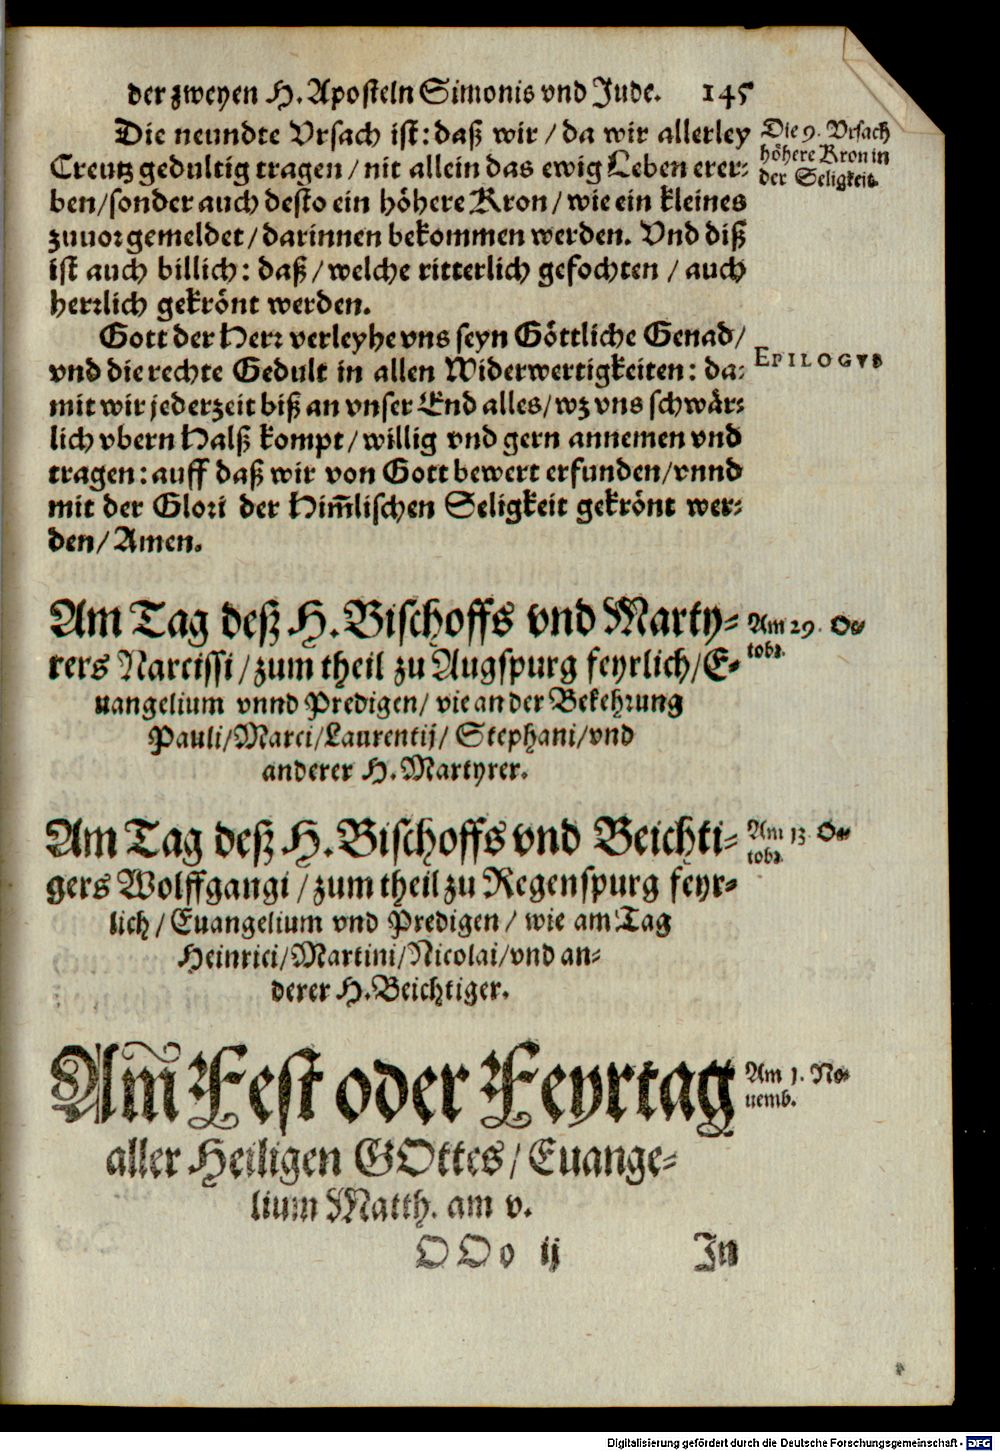 der zweyen H. Aposteln Simonis vnd Jude. 145
Die neundte Vrsach ist: daß wir / da wir allerley
Creutz gedultig tragen / nit allein das ewig Leben erer-
ben/sonder auch desto ein höhere Kron / wie ein kleines
zuuor gemeldet / darinnen bekommen werden. Vnd diß
ist auch billich: daß / welche ritterlich gefochten / auch
herrlich gekrönt werden.
Die 9. Vrsach
höhere Kron in
der Seligkeit.
Gott der Herr verleyhe vns seyn Göttliche Genad/
vnd die rechte Gedult in allen Widerwertigkeiten: da-
mit wir jederzeit biß an vnser End alles/ wz vns schwär-
lich vbern Halß kompt / willig vnd gern annemen vnd
tragen: auff daß wir von Gott bewert erfunden/vnnd
mit der Glori der Him̃lischen Seligkeit gekrönt wer-
den/ Amen.
EPILOGVS
Am Tag deß H. Bischoffs vnd Marty-
rers Narcissi / zum theil zu Augspurg feyrlich/E-
uangelium vnnd Predigen/ vie an der Bekehrung
Pauli/Marci/Laurentij/ Stephani/vnd
anderer H. Martyrer.
Am 29. Oc-
tobr.
Am Tag deß H. Bischoffs vnd Beichti-
gers Wolffgangi / zum theil zu Regenspurg feyr-
lich / Euangelium vnd Predigen / wie am Tag
Heinrici/Martini/Nicolai/vnd an-
derer H. Beichtiger.
Am 13. Oc-
tobr.
Am̃ Fest oder Feyrtag
aller Heiligen GOttes / Euange-
lium Matth. am v.
Am 1. No-
uemb.
OOo ij In
Digitalisierung gefördert durch die Deutsche Forschungsgemeinschaft - DFG